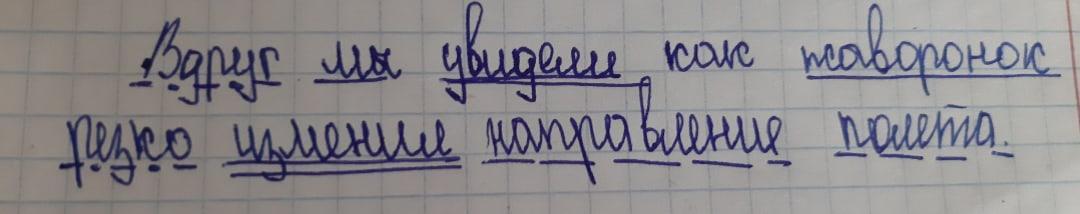 Вдруг мы увидели как жаворонок
резко изменил направление полета.